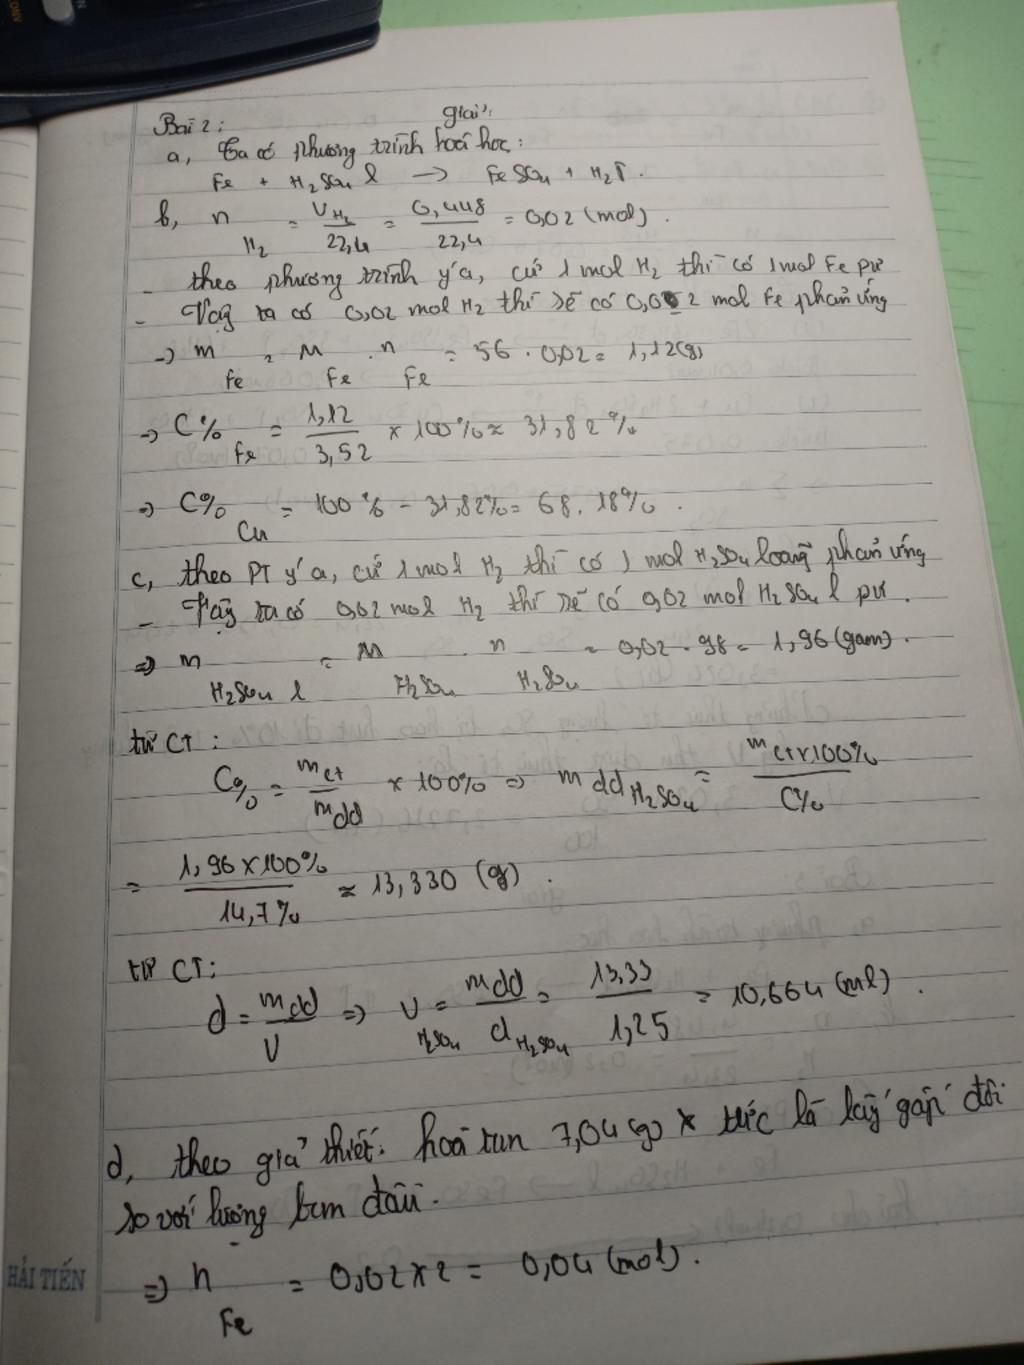 Bài 2: giải:
a, Ta có phương trình hoá học:
Fe + H₂SO₄ l → FeSO₄ + H₂↑.
b, n H₂ = V H₂ / 22,4 = 0,448 / 22,4 = 0,02 (mol).
- theo phương trình ý a, cứ 1 mol H₂ thì có 1 mol Fe pư
- Vậy ta có 0,02 mol H₂ thì sẽ có 0,02 mol Fe phản ứng
→ m Fe = M Fe . n Fe = 56 . 0,02 = 1,12(g)
→ C% Fe = 1,12 / 3,52 × 100% ≈ 31,82%
⇒ C% Cu = 100% - 31,82% = 68,18%.
c, theo PT ý a, cứ 1 mol H₂ thì có 1 mol H₂SO₄ loãng phản ứng
- Vậy ta có 0,02 mol H₂ thì sẽ có 0,02 mol H₂SO₄ l pư.
⇒ m H₂SO₄ l = M H₂SO₄ . n H₂SO₄ = 0,02 . 98 = 1,96 (gam).
từ CT:
C% = mct / mdd × 100% ⇒ m dd H₂SO₄ = mct x 100% / C%
= 1,96 x 100% / 14,7% ≈ 13,330 (g).
từ CT:
d = mdd / V ⇒ V H₂SO₄ = mdd / d H₂SO₄ = 13,33 / 1,25 = 10,664 (ml).
d, theo giả thiết: hoà tan 7,04(g) X tức là lấy gấp đôi
so với lượng ban đầu.
⇒ n Fe = 0,02 x 2 = 0,04 (mol).
HẢI TIẾN